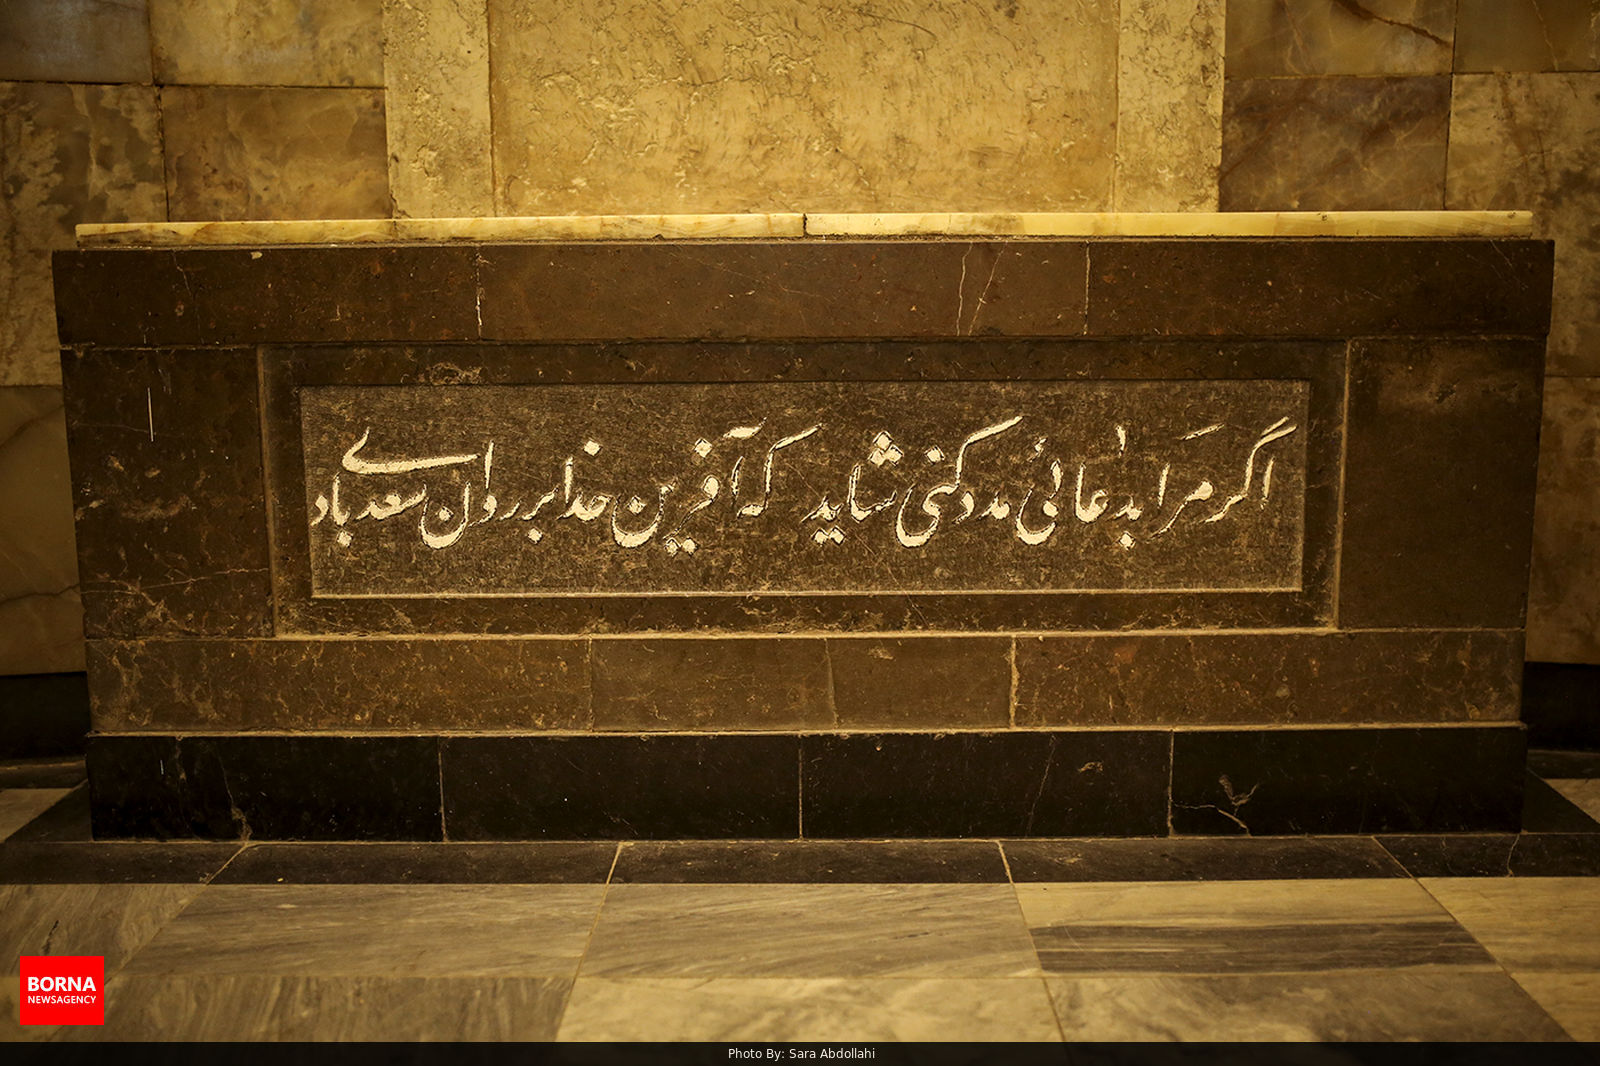 اگر مرا بدعائی مدد کنی شاید که آفرین خدا بر روان سعدی باد
BORNA
NEWSAGENCY
Photo By: Sara Abdollahi